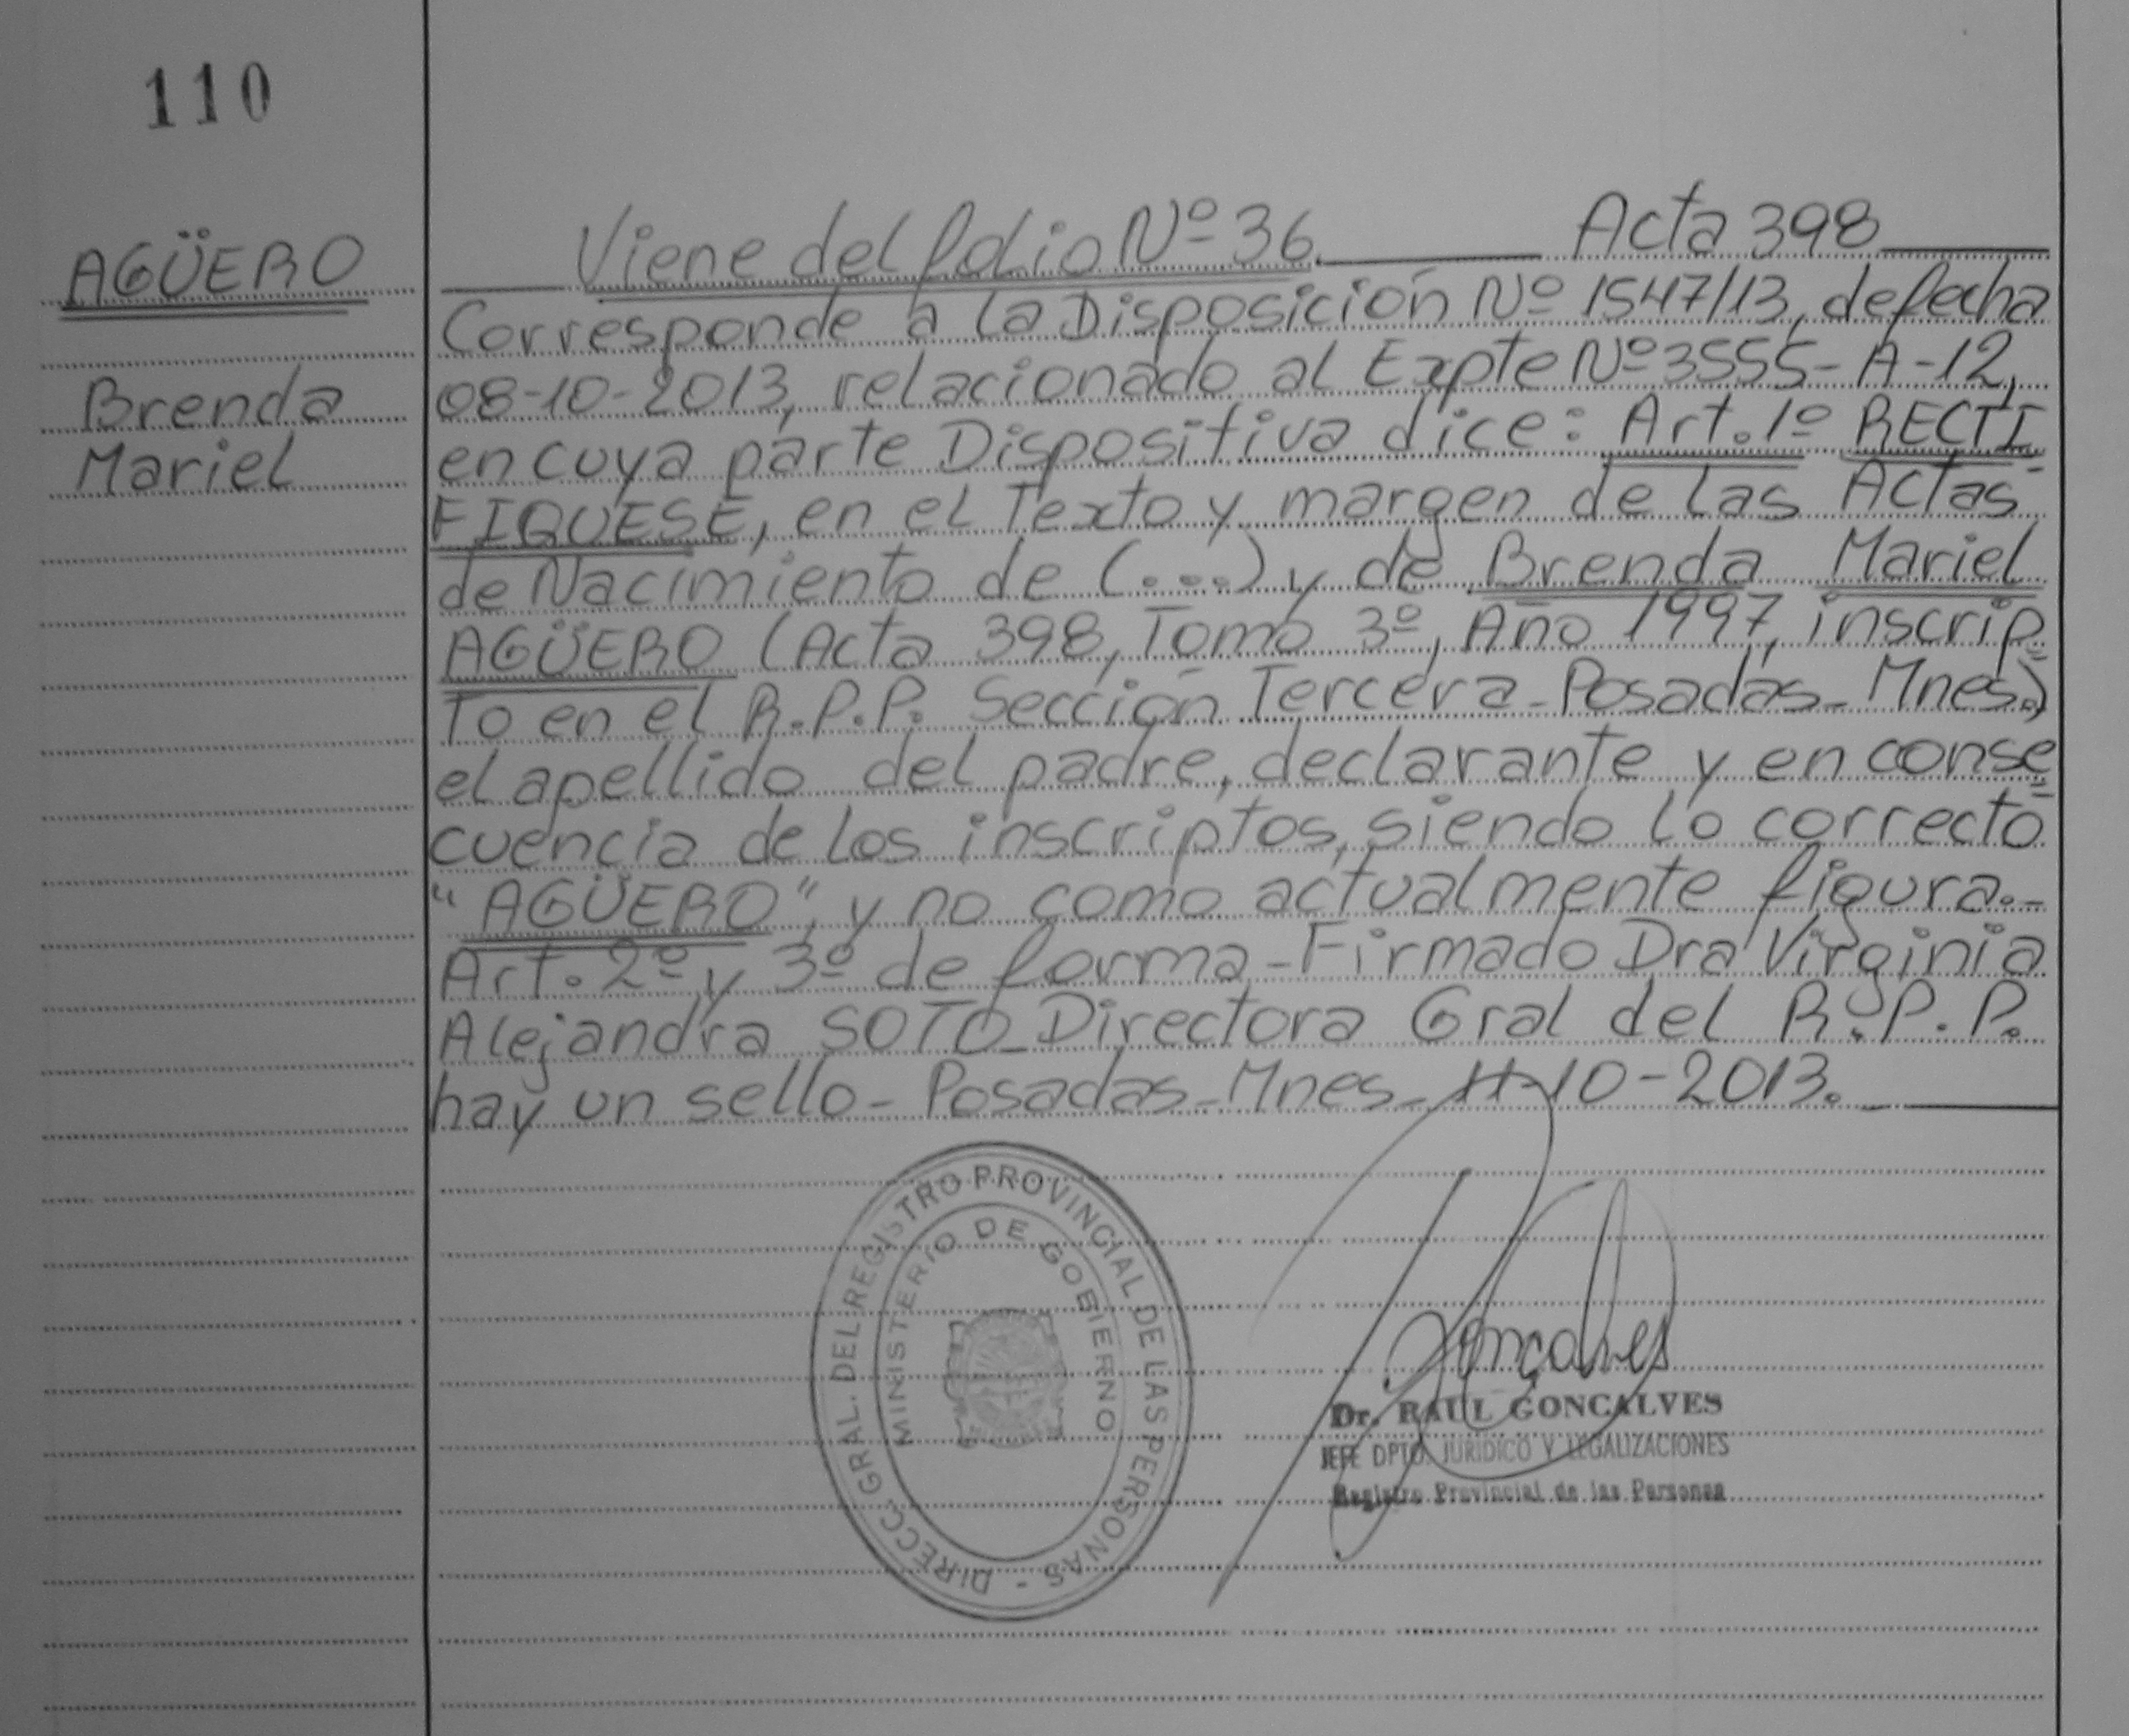 110
AGÜERO
Brenda
Mariel
Viene del folio Nº 36. Acta 398
Corresponde a la Disposición Nº 1547/13, de fecha
08-10-2013, relacionado al Expte Nº 3555-A-12,
en cuya parte Dispositiva dice: Art. 1º RECTI
FIQUESE, en el Texto y margen de las Actas
de Nacimiento de (....) y de Brenda Mariel
AGÜERO (Acta 398, Tomo 3º, Año 1997, inscrip=
To en el R.P.P. Sección Tercera-Posadas-Mnes.)
el apellido del padre, declarante y en conse=
cuencia de los inscriptos, siendo lo correcto
"AGÜERO", y no como actualmente figura.-
Art. 2º y 3º de forma-Firmado Dra Virginia
Alejandra SOTO-Directora Gral del R.P.P.
hay un sello-Posadas-Mnes-11-10-2013.
DIRECC. GRAL. DEL REGISTRO PROVINCIAL DE LAS PERSONAS -
MINISTERIO DE GOBIERNO
Gonçalves
Dr. RAUL GONCALVES
JEFE DPTO. JURIDICO Y LEGALIZACIONES
Registro Provincial de las Personas